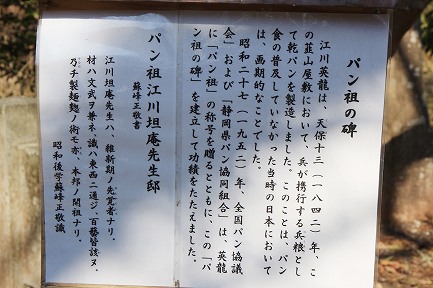 パン祖の碑
江川英龍は、天保十三(一八四二)年、こ
の韮山屋敷において、兵が携行する兵粮とし
て乾パンを製造しました。このことは、パン
食の普及していなかった当時の日本において
は、画期的なことでした。
昭和二十七(一九五二)年、全国パン協議
会」および「静岡県パン協同組合」は、英龍
に「パン祖」の称号を贈るとともに、この「パ
ン祖の碑」を建立して功績をたたえました。
パン祖江川坦庵先生邸
蘇峰正敬書
江川坦庵先生ハ、維新期ノ先覚者ナリ。
材ハ文武ヲ兼ネ、識ハ東西ニ通ジ、百藝皆該ヌ。
乃チ製麺麭ノ術モ亦、本邦ノ開祖ナリ。
昭和後学蘇峰正敬識